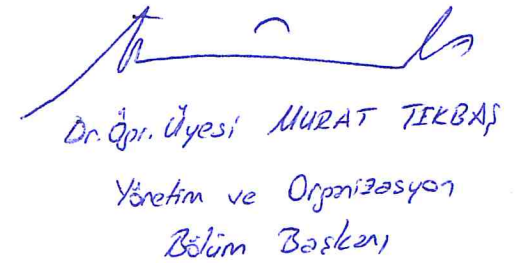 Dr. Öğr. Üyesi MURAT TEKBAŞ
Yönetim ve Organizasyon
Bölüm Başkanı